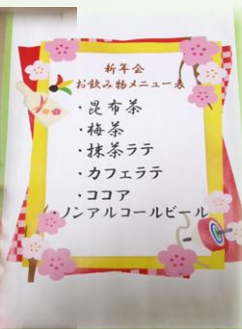 新年会
お飲み物メニュー表
・昆布茶
・梅茶
・抹茶ラテ
・カフェラテ
・ココア
・ノンアルコールビール